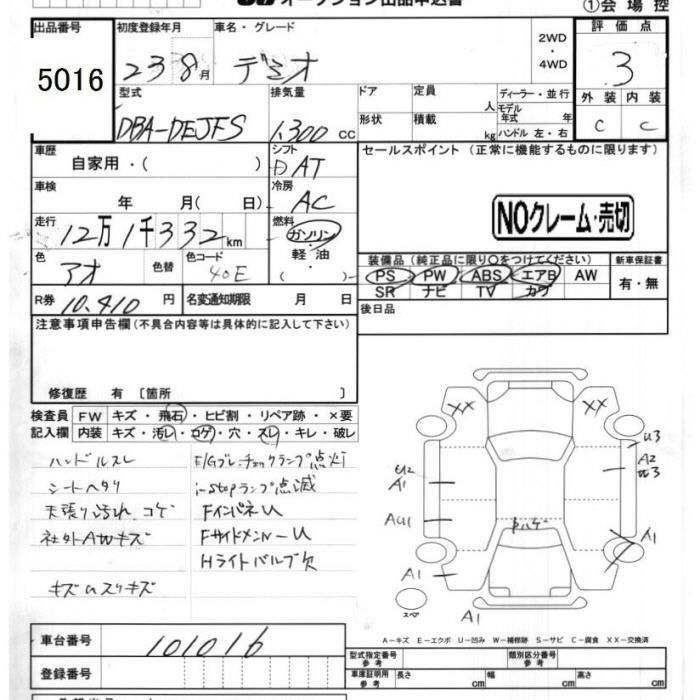 オークション出品申込書
①会場控
出品番号
5016
初度登録年月
23 8月
車名・グレード
デミオ
2WD
・
4WD
評価点
3
外装 内装
C C
型式
DBA-DEJFS
排気量
1,300 CC
ドア
形状
定員 人
積載 kg
ディーラー・並行
モデル年式 年
ハンドル 左・右
車歴
自家用・( )
シフト
AT
セールスポイント (正常に機能するものに限ります)
NOクレーム・売切
車検
年 月( 日)
冷房
AC
走行
12万1千332km
燃料
ガソリン
・
軽・油
( )
色
アオ
色替
色コード
40E
装備品 (純正品に限り○をつけてください)
PS PW ABS エアB AW
SR ナビ TV カワ
新車保証書
有・無
R券 10,410 円
名変通知期限 月 日
後日品
注意事項申告欄(不具合内容等は具体的に記入して下さい)
修復歴 有 〔箇所 〕
検査員記入欄
FW キズ・飛石・ヒビ割・リペア跡・×要
内装 キズ・汚レ・コゲ・穴・スレ・キレ・破レ
ハンドルスレ
シートヘタリ
天張り汚れ コゲ
社外AWキズ
キズUスリキズ
E/Gブレーチェックランプ点灯
i-stopランプ点滅
FインパネU
FサイドメンバーU
Hライトバルブ欠
XX XX
U3
A2
U3
U2
A1
AU1
A1
A1
A1
スペア
A-キズ E-エクボ U-凹み W-補修跡 S-サビ C-腐食 XX-交換済
車台番号
101016
登録番号
型式指定番号 参考
類別区分番号 参考
車庫証明用 参考
長さ cm
幅 cm
高さ cm